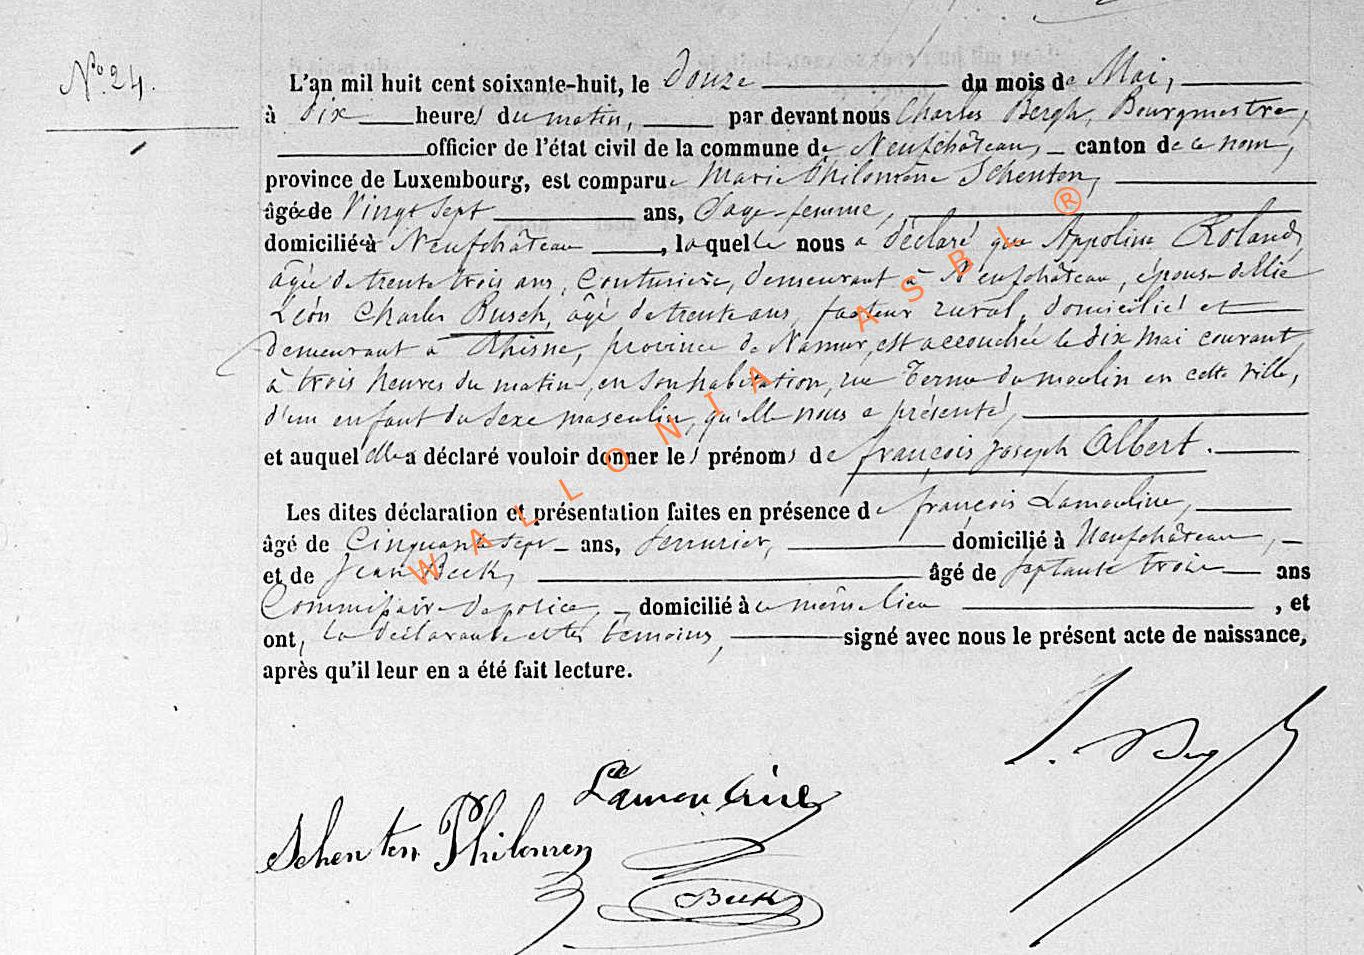 N° 24.
L'an mil huit cent soixante-huit, le douze du mois de Mai,
à dix heures du matin, par devant nous Charles Bergh, Bourgmestre,
officier de l'état civil de la commune de Neufchâteau, canton de ce nom,
province de Luxembourg, est comparue Marie Philomène Schenten,
âgée de Vingt Sept ans, Sage-femme,
domiciliée à Neufchâteau, laquelle nous a déclaré que Appoline Roland,
âgée de trente trois ans, Couturière, demeurant à Neufchâteau, épouse d'Elie
Léon Charles Busch, âgé de trente ans, facteur rural, domicilié et
demeurant à Rhisne, province de Namur, est accouchée le dix mai courant,
à trois heures du matin, en son habitation, rue Terme du moulin en cette ville,
d'un enfant du sexe masculin, qu'elle nous a présenté,
et auquel elle a déclaré vouloir donner les prénoms de françois Joseph Albert.
Les dites déclaration et présentation faites en présence de françois Lamouline,
âgé de Cinquante sept ans, Serrurier, domicilié à Neufchâteau,
et de Jean Beck, âgé de septante trois ans
Commissaire de police, domicilié à ce même lieu, et
ont, la déclarante et les témoins, signé avec nous le présent acte de naissance,
après qu'il leur en a été fait lecture.
Lamouline
Schenten Philomen
Beck
WALLONIA ASBL ®